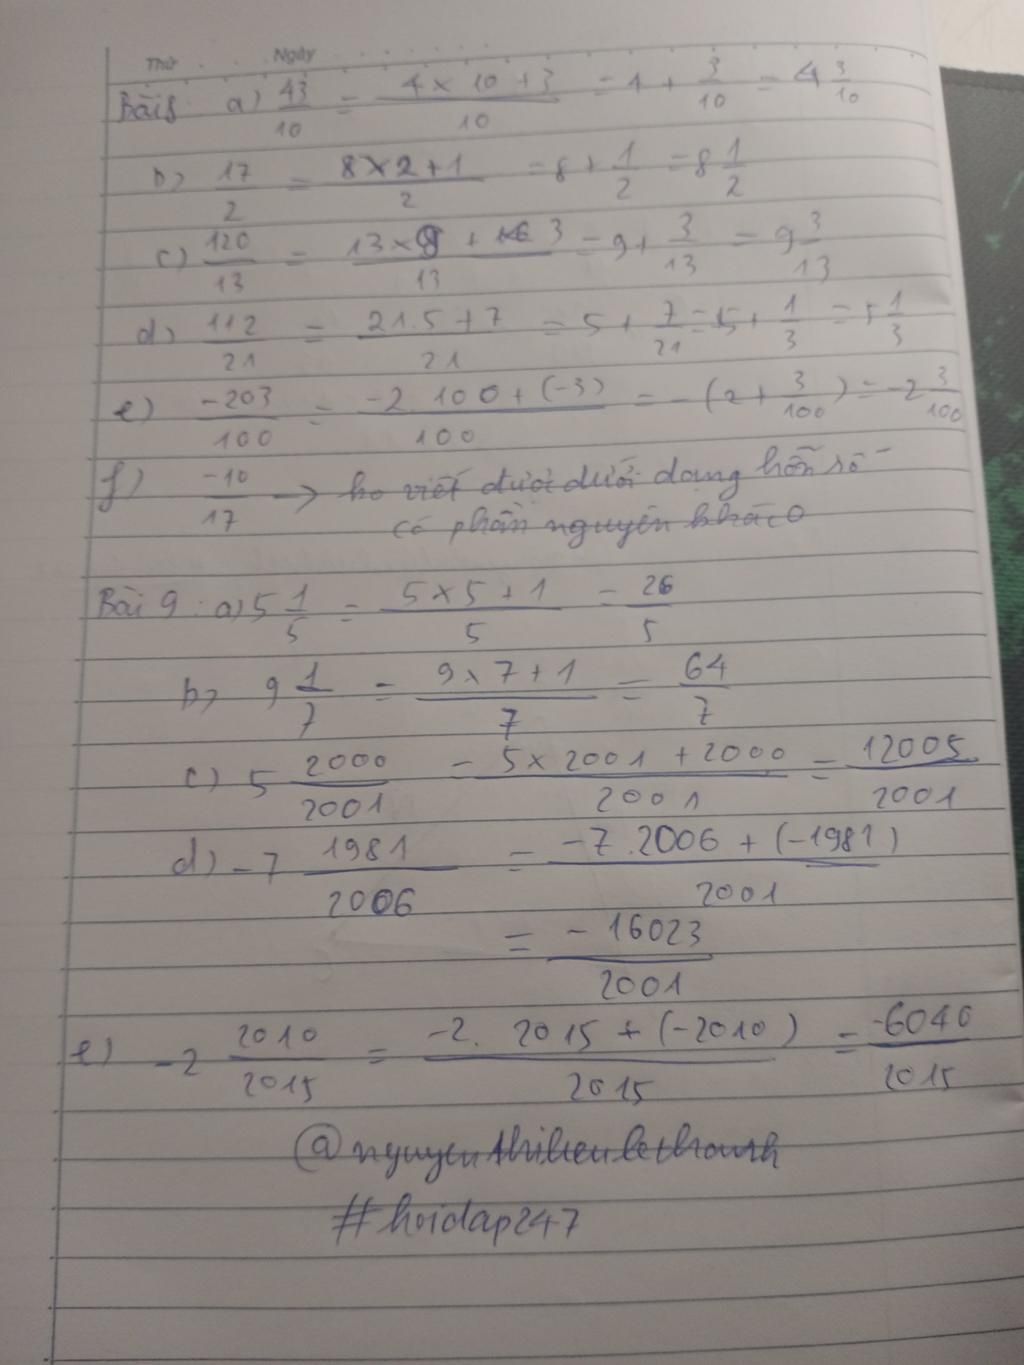 Thứ Ngày
Bài 8 a) 43/10 = 4 x 10 + 3/10 = 4 + 3/10 = 4 3/10
b) 17/2 = 8 x 2 + 1/2 = 8 + 1/2 = 8 1/2
c) 120/13 = 13 x 9 + 3/13 = 9 + 3/13 = 9 3/13
d) 112/21 = 21.5 + 7/21 = 5 + 7/21 = 5 + 1/3 = 5 1/3
e) -203/100 = -2.100 + (-3)/100 = -(2 + 3/100) = -2 3/100
f) -10/17 → ko viết được dưới dạng hỗn số
có phần nguyên khác 0
Bài 9: a) 5 1/5 = 5 x 5 + 1/5 = 26/5
b) 9 1/7 = 9 x 7 + 1/7 = 64/7
c) 5 2000/2001 = 5 x 2001 + 2000/2001 = 12005/2001
d) -7 1981/2006 = -7.2006 + (-1981)/2001
= -16023/2001
e) -2 2010/2015 = -2. 2015 + (-2010)/2015 = -6040/2015
#hoidap247